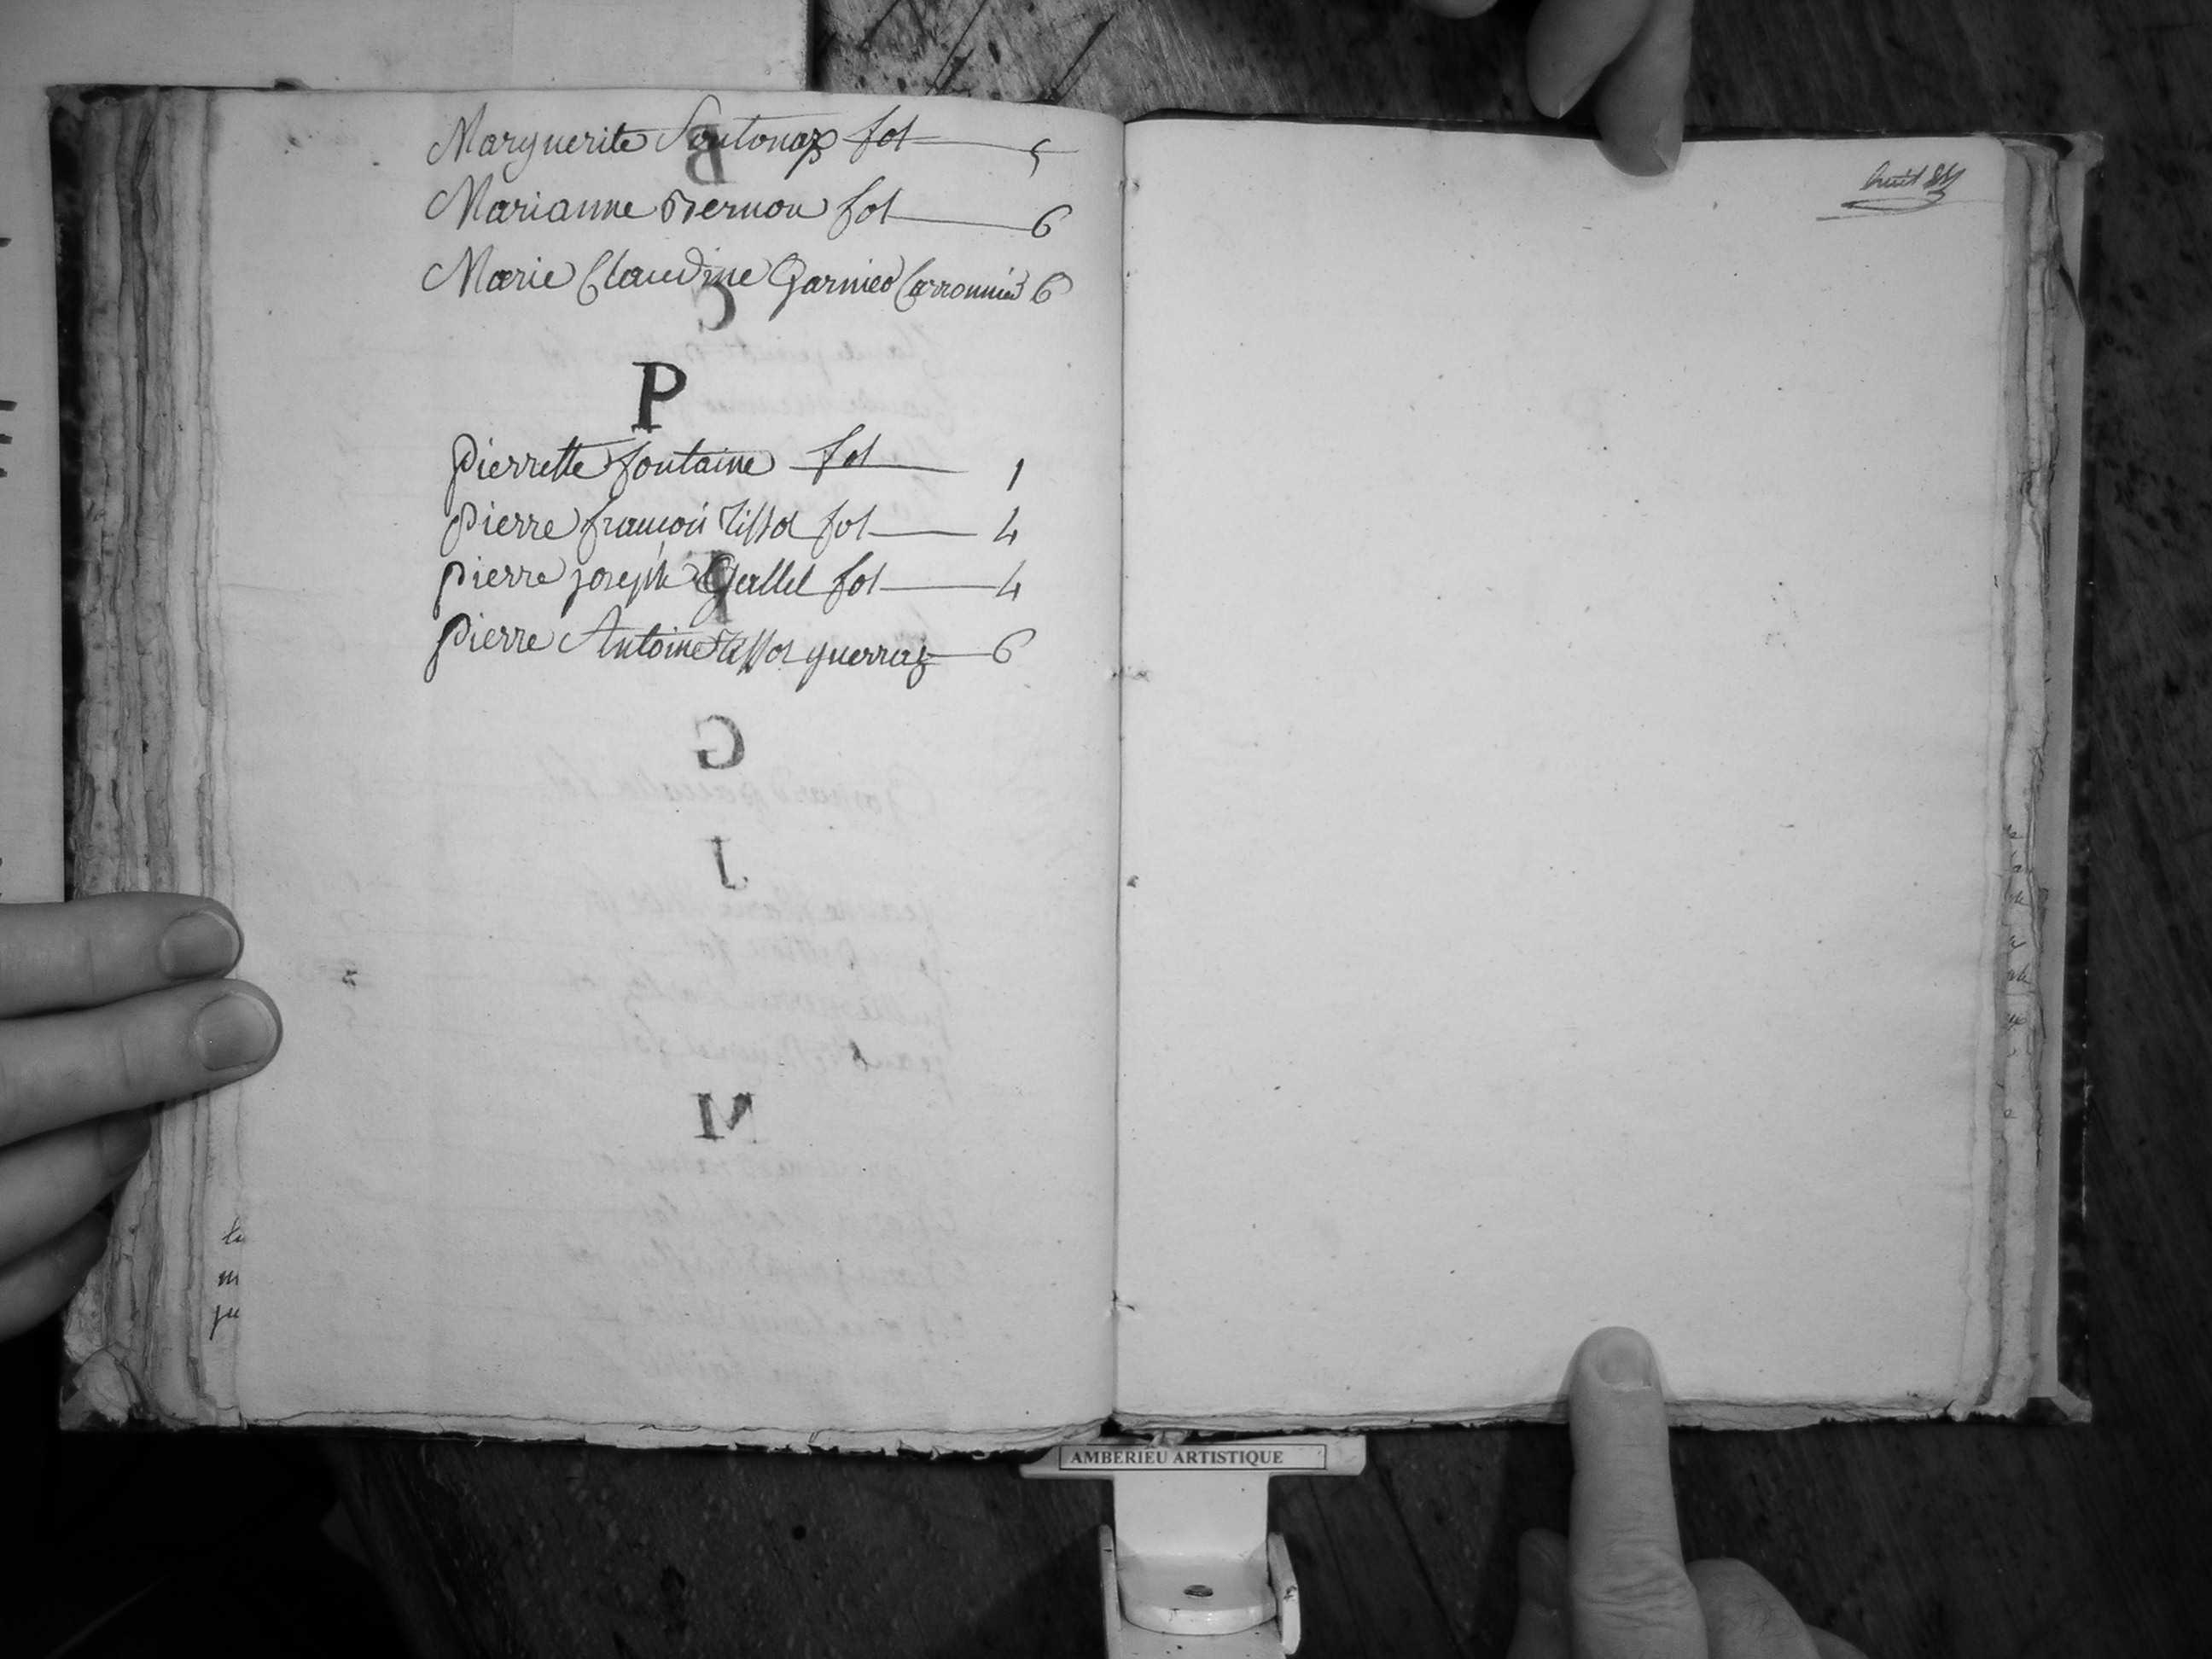 Marguerite Soutonax fol 5
Marianne Vernou fol 6
Marie Claudine Garnier Carronnier 6
P
pierrette fontaine fol 1
pierre françois Tissot fol 4
pierre joseph Gallet fol 4
pierre Antoine Tissot guerraz 6
huit
AMBERIEU ARTISTIQUE